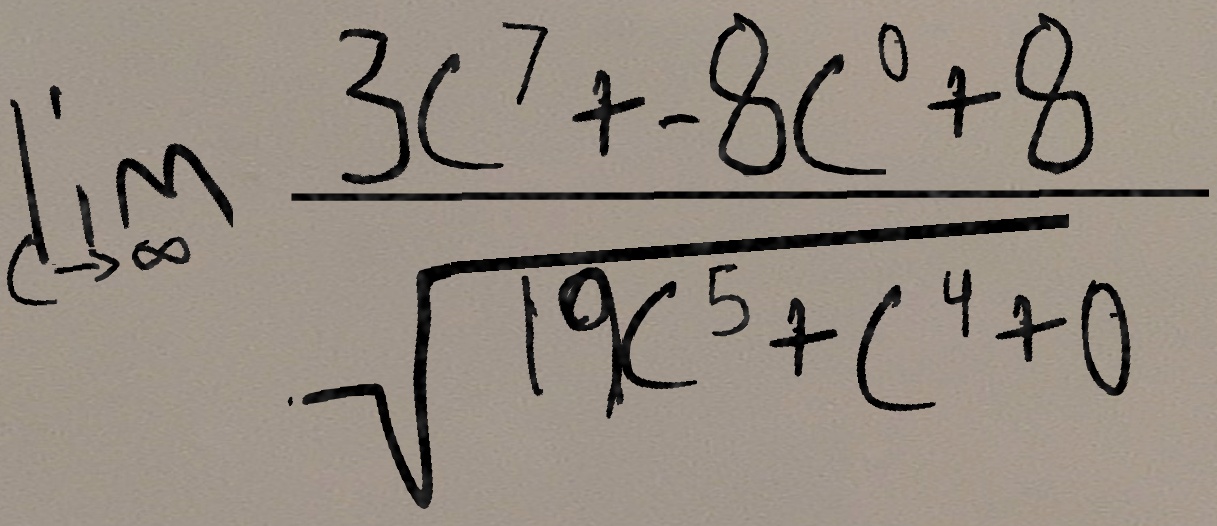 \lim_{c \to \infty} \frac{3c^7 + -8c^0 + 8}{\sqrt{19c^5 + c^4 + 0}}